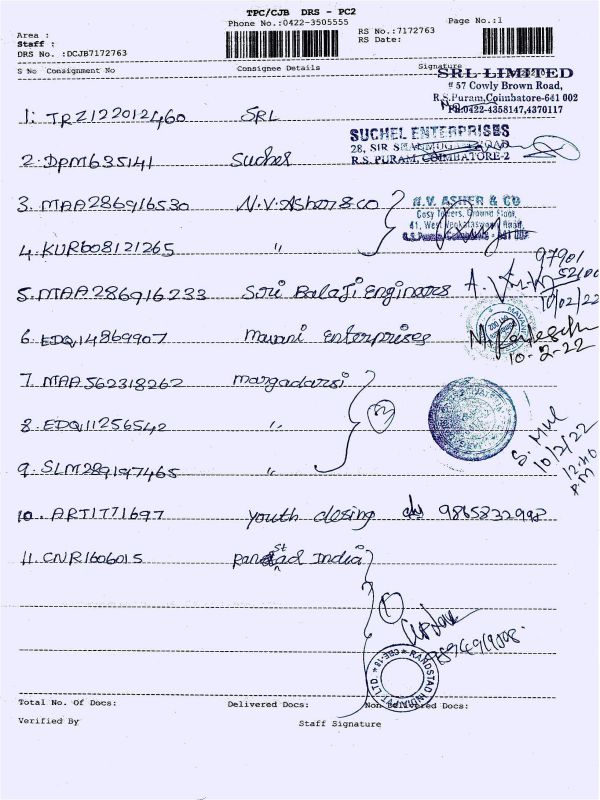 TPC/CJB DRS - PC2
Phone No.:0422-3505555 Page No.:1
Area : RS No.:7172763
Staff : RS Date:
DRS No. :DCJB7172763
S No Consignment No Consignee Details Signature
SRL LIMITED
# 57 Cowly Brown Road,
R.S.Puram,Coimbatore-641 002
Ph:0422-4358147,4370117
1. TRZ122012460 SRL
SUCHEL ENTERPRISES
28, SIR
R.S. PURAM, COIMBATORE-2
2. DPM635141 Suchel
3. MAA286916530 N.V.Asher & co
N.V. ASHER & CO
Cosy Towers, Ground Floor,
41, West Venkataswamy Road,
4. KUR608121265 "
97901
52100
5. MAA286916233 Sori Balaji Enginares
10/02/22
6. EDQ14869907 Mavani Enterprises
10-2-22
7. MAA562318262 Margadarsi
8. EDQ11256542 "
2
10/2/22
12:40
P.M
9. SLM289197465 "
10. ART1771697 youth desing 9865832998
11. CNR1606015 Randstad India
1
RANDSTAD INDIA PVT LTD. * CBE-18 *
Total No. Of Docs: Delivered Docs: Non Delivered Docs:
Verified By Staff Signature